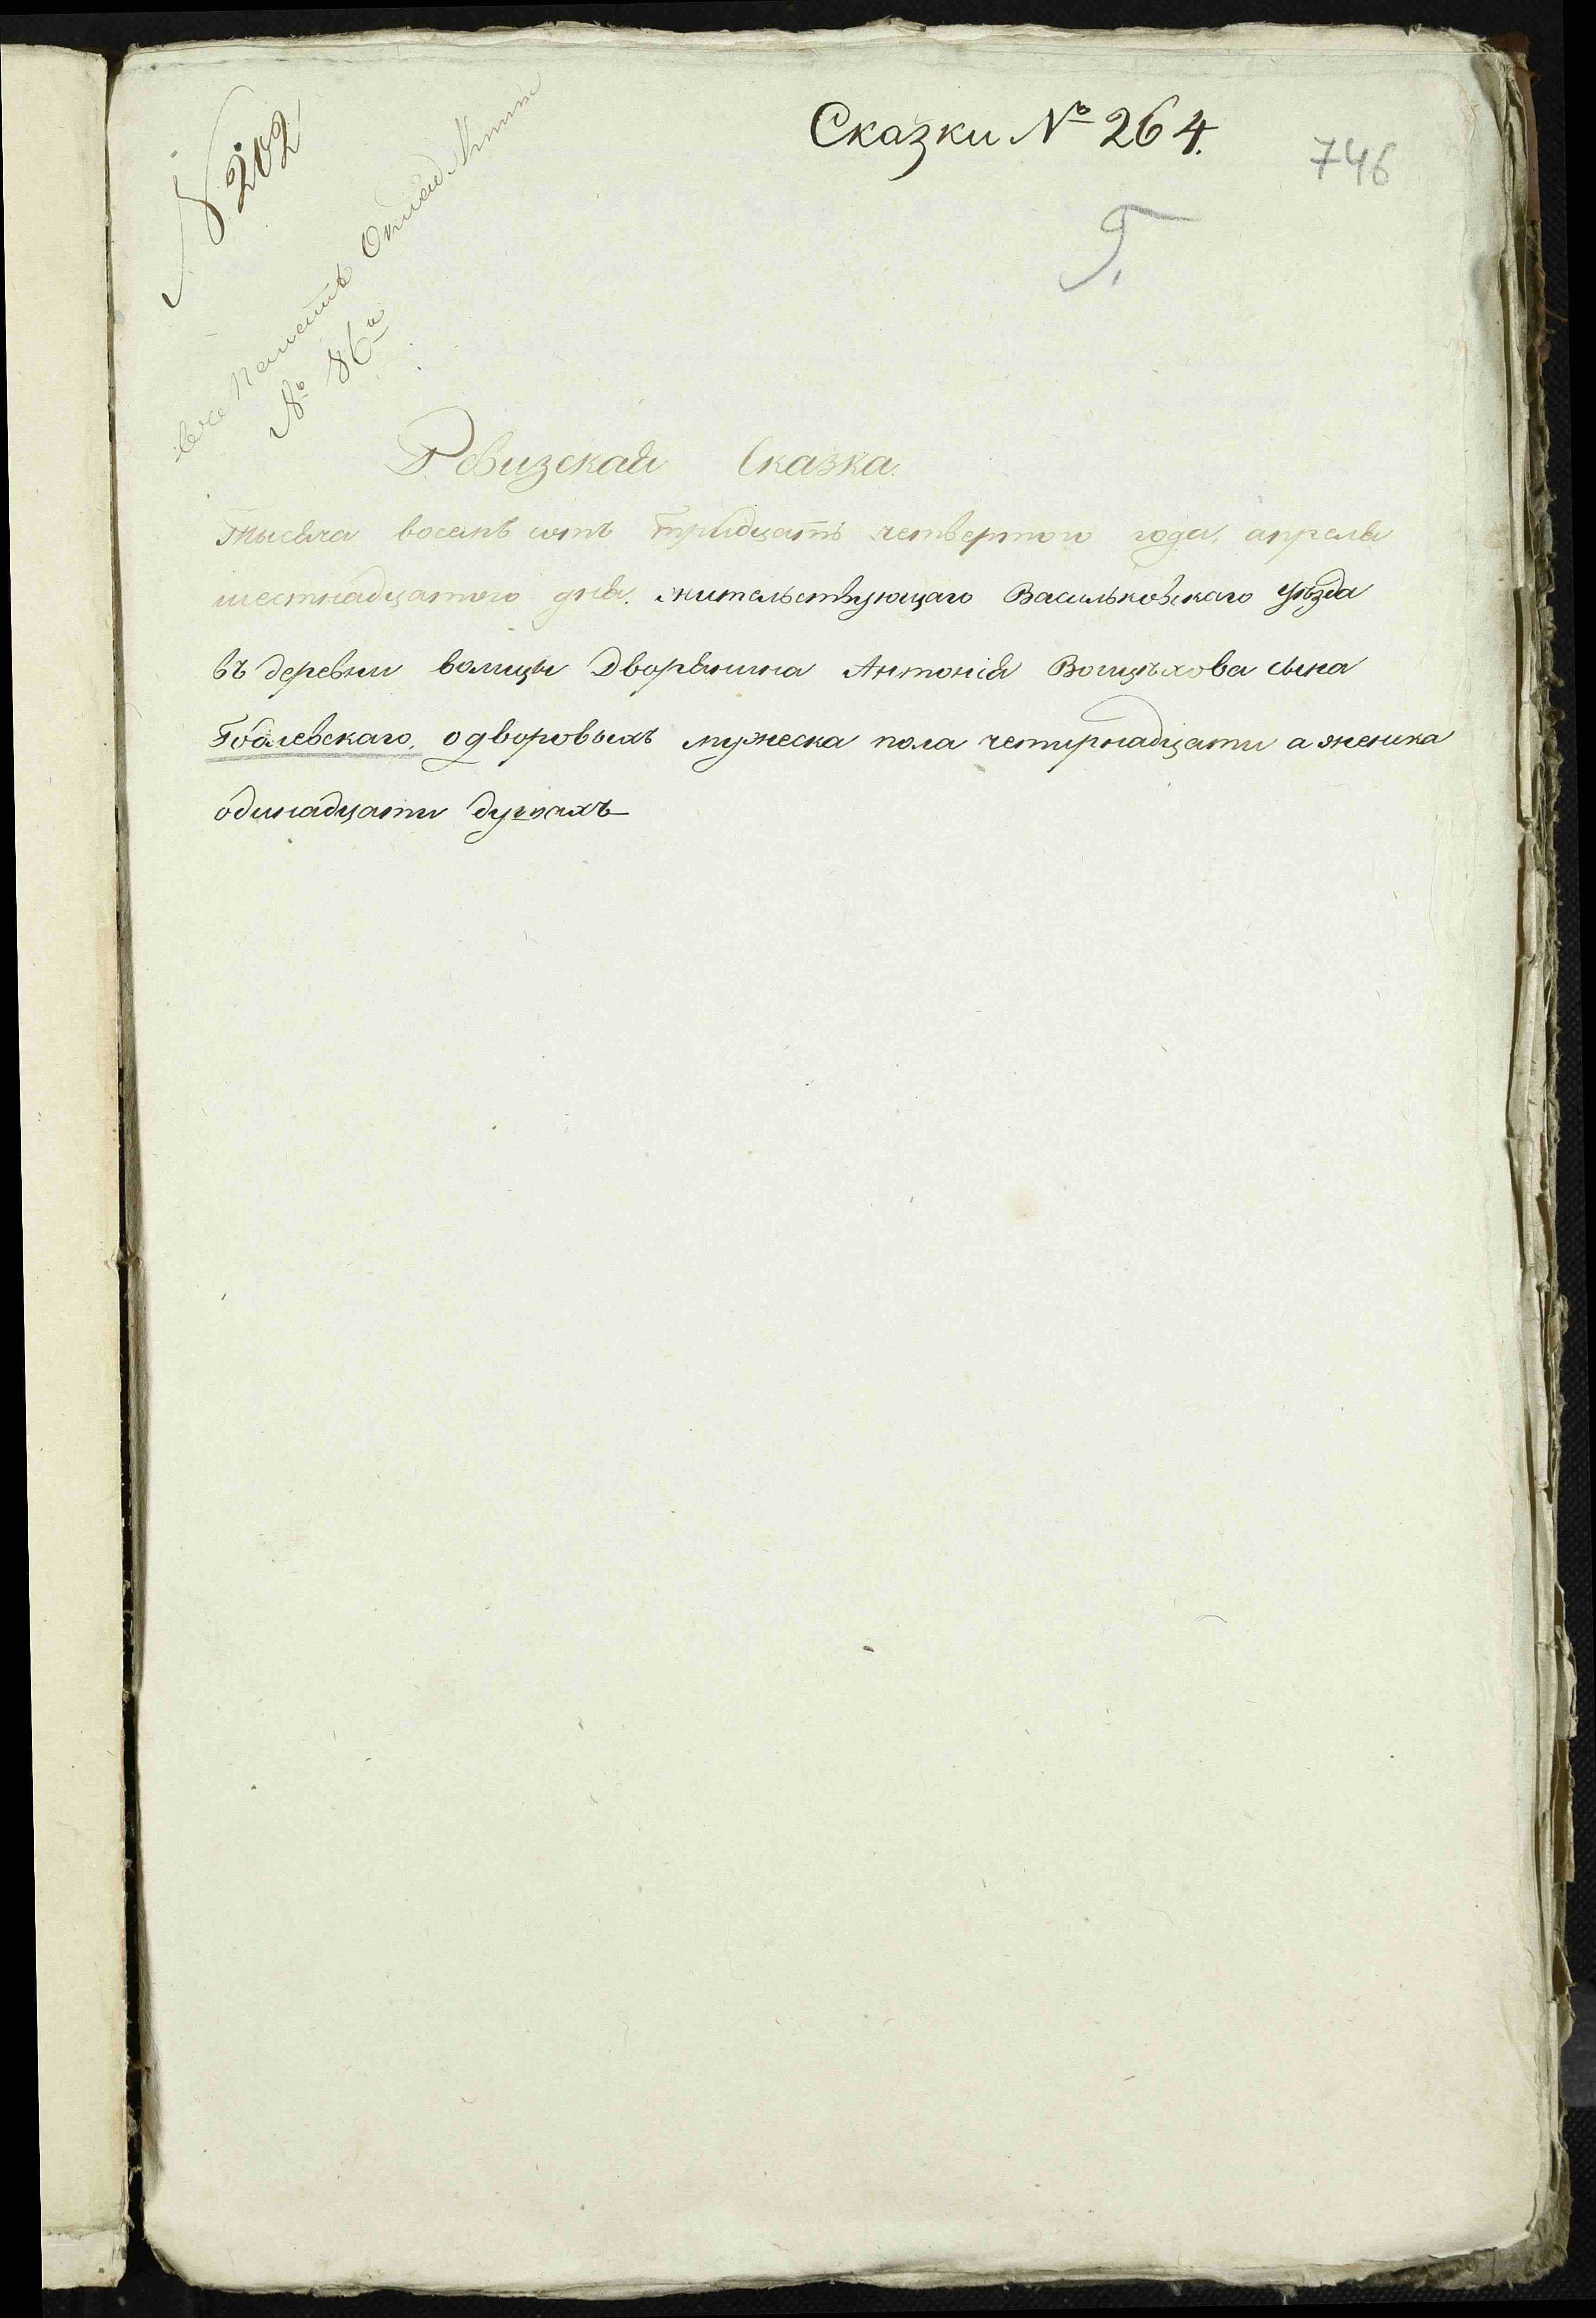 Сказки № 264.
746
Г.
№ 202
№ 86й
Ревизская Сказка.
Тысяча восемъ сотъ тридцать четвертого года, апреля
шестнадцатого дня. жительствующаго Васильковскаго уѣзда
въ деревни волицы Дворянина Антонія Войцѣхова сына
одворовыхъ мужеска пола четирнадцати а женска
одинадцати душахъ